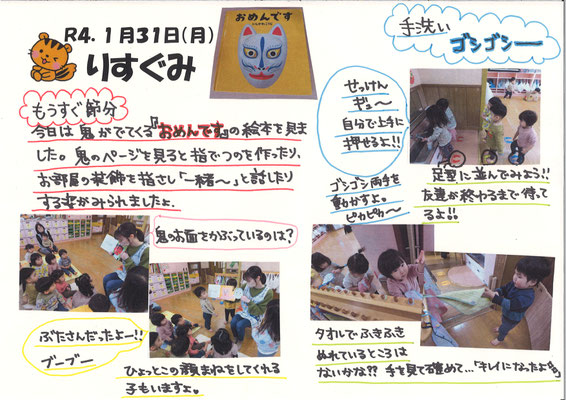 R4. 1月31日(月)
りすぐみ
おめんです
もうすぐ節分
今日は鬼がでてくる『おめんです』の絵本を見ま
した。鬼のページを見ると指でつのを作ったり、
お部屋の装飾を指さし「一緒〜」と話したり
する姿がみられましたよ。
鬼のお面をかぶっているのは?
ぶたさんだったよー!!
ブーブー
ひょっとこの顔まねをしてくれる
子もいますよ。
手洗い
ゴシゴシー
せっけん
ギュ〜
自分で上手に
押せるよ!!
ゴシゴシ両手を
動かすよ。
ピカピカ〜
足型に並んでみよう!!
友達が終わるまで待って
るよ!!
タオルでふきふき
ぬれているところは
ないかな?? 手を見て確めて…「キレイになったよ」